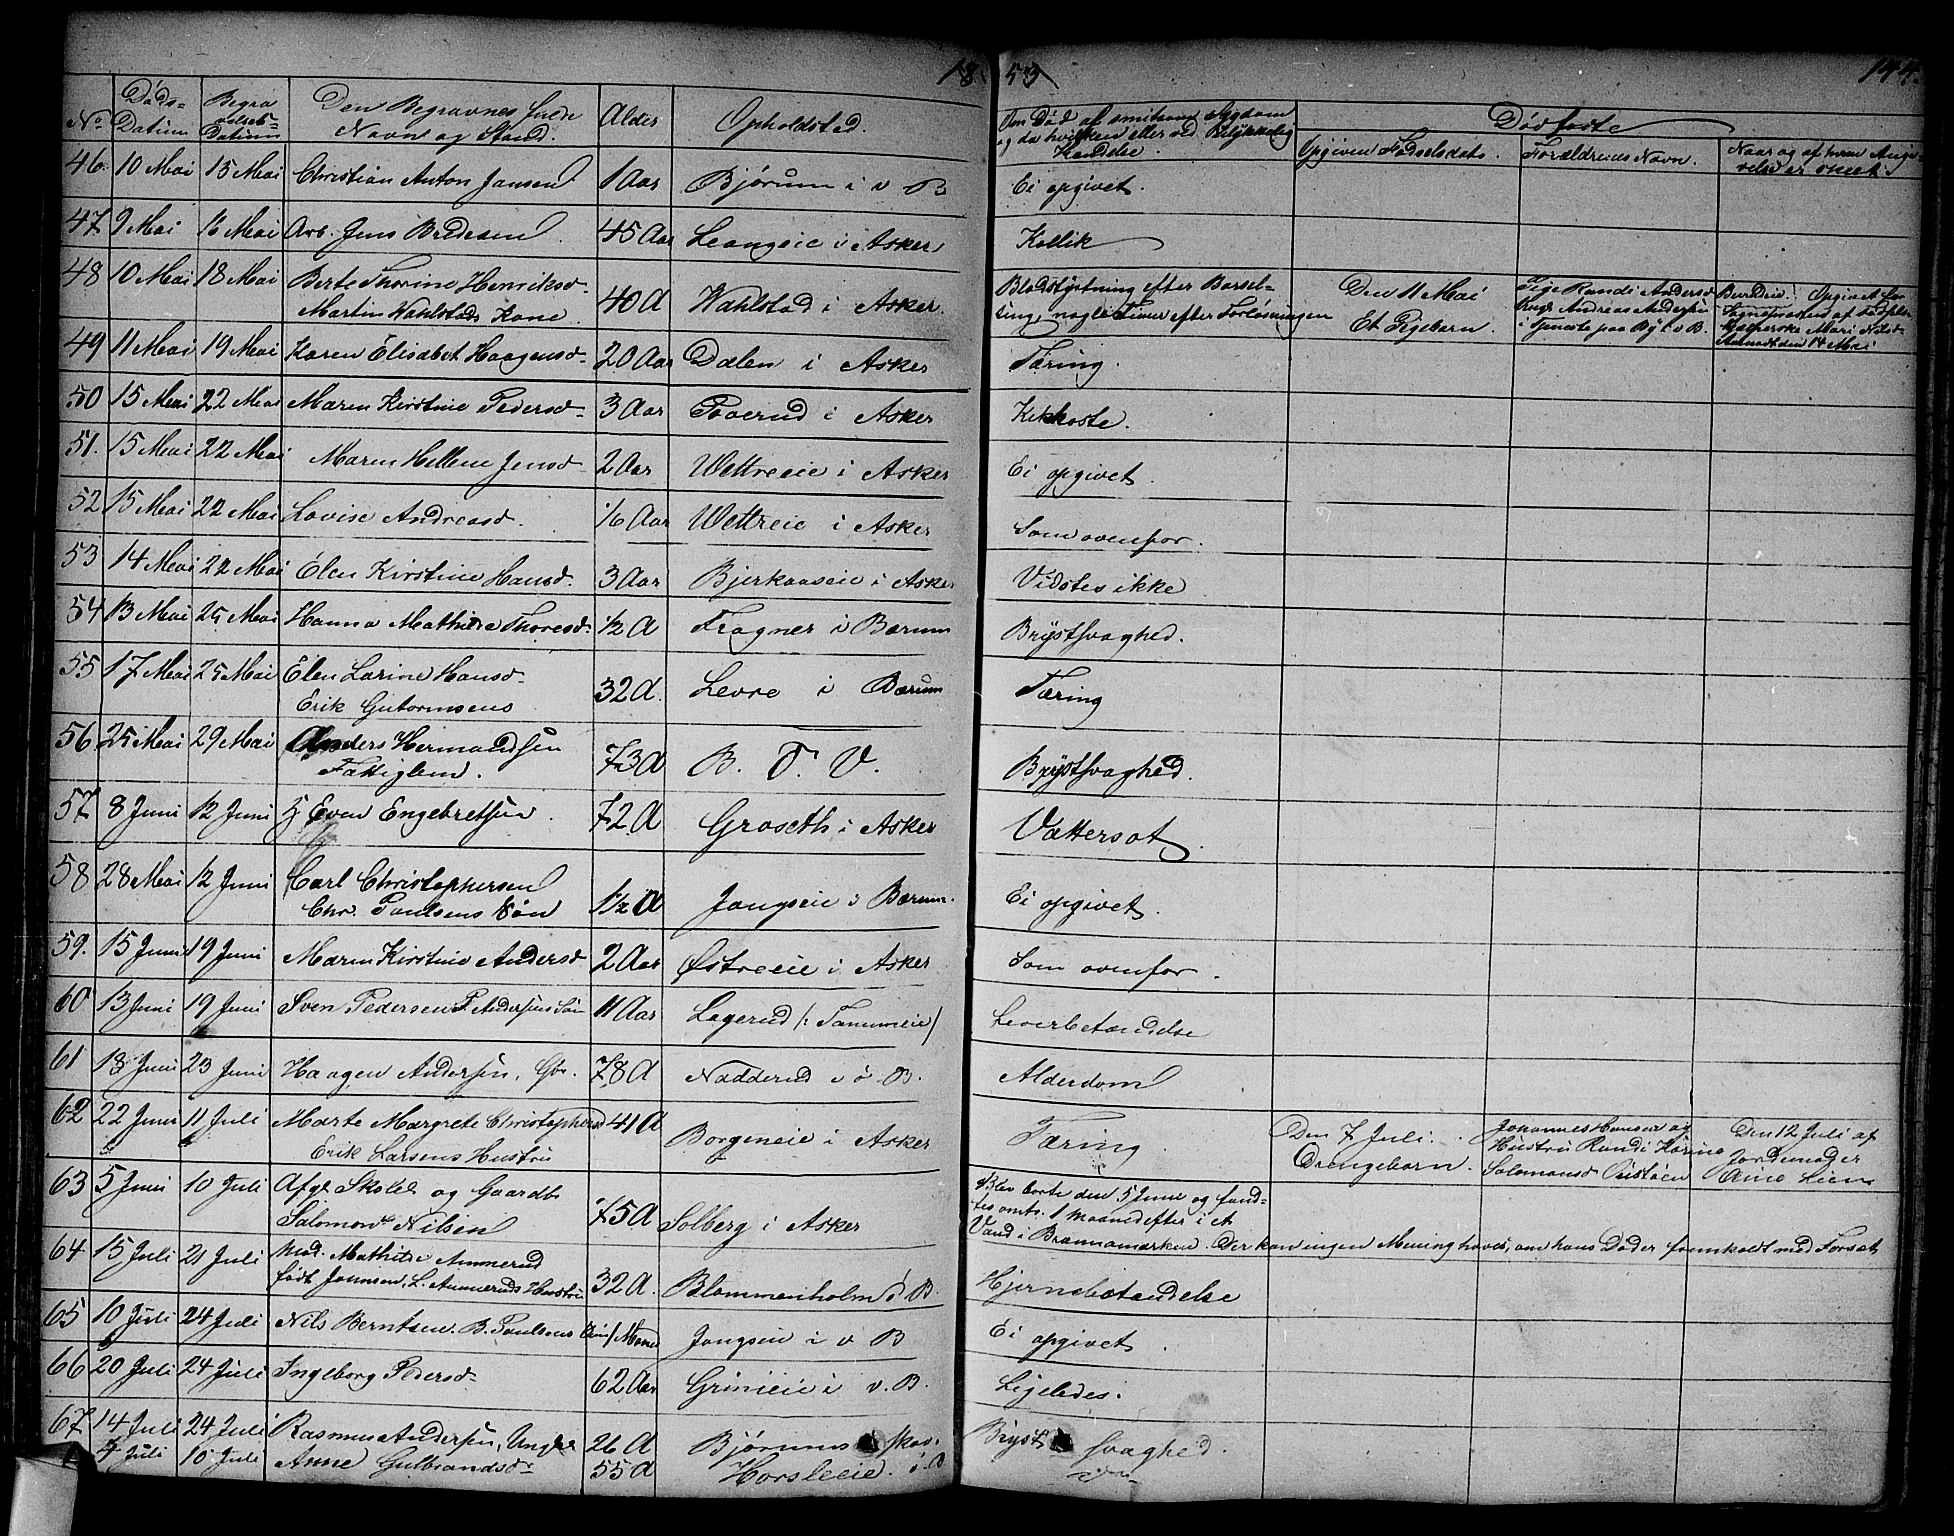 18 53
144.
No.
Døds-
Datum
Begra
velses-
Datum
Den Begravnes fulde
Navn og Stand.
Alder
Opholdsted.
Om Død af smitsom Sygdom
og da hvilken eller ved Ulykkelig
Hændelse.
Dødfødte
Opgiven Fødselsdato.
Forældrenes Navn.
Naar og af hvem Angi-
velse er skeet.
46. 10 Mai 15 Mai Christian Anton Jansen 1 Aar Bjørum i v B Ei opgivet.
47 9 Mai 16 Mai Arb. Jens Bredesen 45 Aar Leangeie i Asker Kollik
48 10 Mai 18 Mai Berte Thorine Henriksd-
Martin Wahlstads Kone. 40 A Wahlstad i Asker.
Blodstyrtning efter Barsel-
seng, nogle Timer efter Forløsningen
Den 11 Mai
Et Pigebarn.
Pige Randi Andersd
Andreas Andersen
i Tjeneste paa v. B.
Opgivet for
Sognepræsten af
Mari Nilsd
den 14 Mai
49 11 Mai 19 Mai Karen Elisabet Haagensd- 20 Aar Dælen i Asker Tæring.
50 15 Mai 22 Mai Maren Kirstine Pedersd- 3 Aar Poverud i Asker Kikhoste.
51. 15 Mai 22 Mai Maren Hellene Jensd 2 Aar Wettreeie i Asker Ei opgivet.
52 15 Mai 22 Mai Lovise Andreasd. 1/6 Aar Wettreie i Asker Som ovenfor.
53 14 Mai 22 Mai Elen Kirstine Hansd. 3 Aar Bjerkaaseie i Asker Vidstes ikke
54 13 Mai 25 Mai Hanna Mathilde Thoresd- 1/2 A Fragner i Bærum Brystsvaghed.
55 17 Mai 25 Mai Elen Larine Hansd-
Erik Gutormsens 32 A. Levre i Bærum Tæring
56 25 Mai 29 Mai Anders Hermandsen
Fattiglem. 73 A B. F. V. Brystsvaghed.
57 8 Juni 12 Juni Even Engebretsen. 72 A Groseth i Asker Vattersot.
58 28 Mai 12 Juni Carl Christophersen
Chr. Poulsens Søn 1/2 A Jongseie i Bærum. Ei opgivet.
59. 15 Juni 19 Juni Maren Kirstine Andersd 2 Aar Østreeie i Asker Som ovenfor.
60 13 Juni 19 Juni Sven Pedersen P. Andersens Søn 11 Aar Lagerud /: Tanumeie / Leverbetændelse
61 13 Juni 23 Juni Haagen Andersen, Gbr. 78 A Nadderud i ø B. Alderdom
62 22 Juni 11 Juli Marte Margrete Christophersd
Erik Larsens Hustru 41 A Borgeneie i Asker Tæring.
Den 7 Juli.
Drengebarn.
Johannes Hansen og
Hustru Randi Karine
Salomonsd
Den 12 Juli af
Jordemoder
Lien
63 5 Juni 10 Juli Afgl. Skolel og Gaardb
Salomon Nilsen 75 A Solberg i Asker
Blev borte den 5 Juni og fand-
tes omtr. 1 Maaned efter i et
Vand i Brønnamarken. Der kan ingen Mening haves, om hans Død er fremkaldt med Forsæt
64 15 Juli 21 Juli Mad. Mathilde Ammerud
født Jonnsen, L. Ammeruds Hustru 32 A. Blommenholm ø B. Hjernebetændelse
65 10 Juli 24 Juli Nils Berntsen. B. Poulsens 1 Maaned Jongseie i v B Ei opgivet.
66 20 Juli 24 Juli Ingeborg Pedersd- 62 Aar Grinieie i v. B. Ligeledes.
67 14 Juli 24 Juli Rasmus Andersen, Ungk. 26 A Bjørums i skov. Bryst svaghed.
4 Juli 10 Juli Anne Gulbrandsd- 55 A Horsleeie. i B